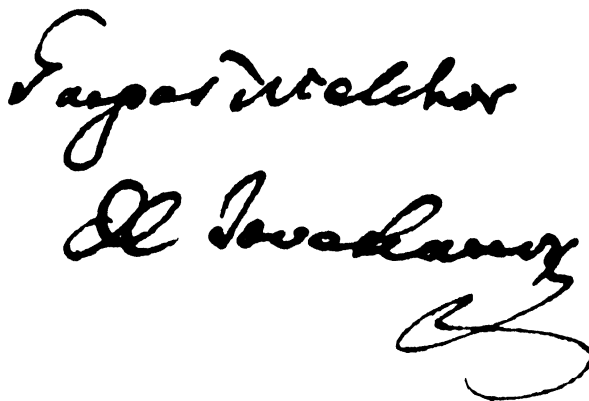 Gaspar Melchor
de Jovellanos